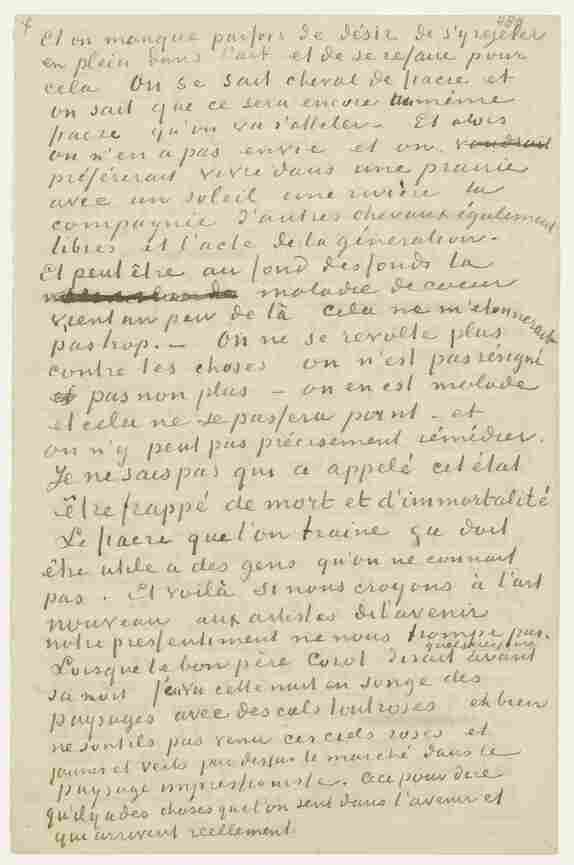 Et on manque parfois de désir de s'y rejeter
en plein dans l'art et de se refaire pour
cela. On se sait cheval de fiacre et
on sait que ce sera encore au même
fiacre qu'on va s'atteler. Et alors
on n'en a pas envie et on voudrait
préférerait vivre dans une prairie
avec un soleil une rivière la
compagnie d'autres chevaux également
libres et l'acte de la génération.
Et peut être au fond des fonds la
maladie de coeur
vient un peu de là cela ne m'étonnerait
pas trop. — On ne se revolte plus
contre les choses on n'est pas résigné
et pas non plus — on en est malade
et cela ne se passera point — et
on n'y peut pas précisément rémédier.
Je ne sais pas qui a appelé cet état
être frappé de mort et d'immortalité
Le fiacre que l'on traine ça doit
être utile a des gens qu'on ne connait
pas. Et voilà si nous croyons à l'art
nouveau aux artistes de l'avenir
notre pressentiment ne nous trompe pas.
Lorsque le bon père Corot disait quelques jours avant
sa mort j'ai vu cette nuit en songe des
paysages avec des ciels tout roses eh bien
ne sont ils pas venu ces ciels roses et
jaunes et verts par dessus le marché dans le
paysage impressioniste. Ceci pour dire
qu'il y a des choses que l'on sent dans l'avenir et
qui arrivent réellement